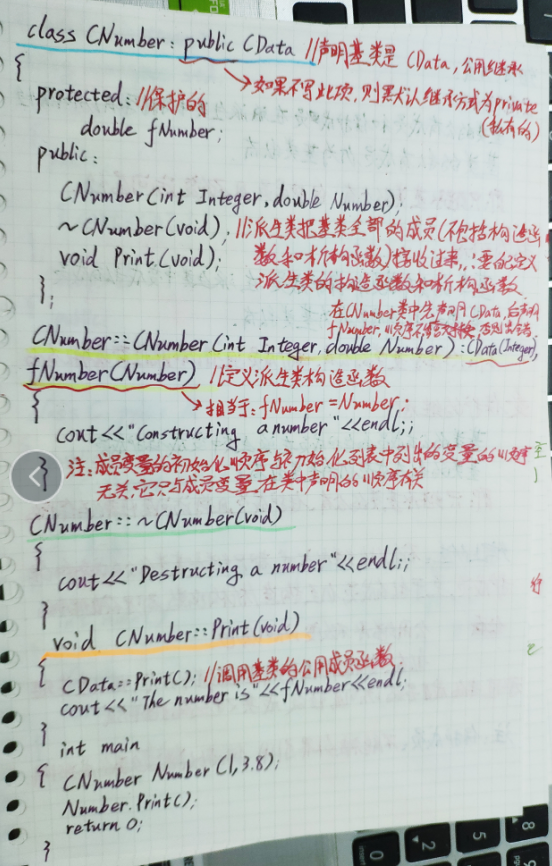 class CNumber: public CData //声明基类是 CData, 公用继承
{ 如果不写此项, 则默认继承方式为private
protected: //保护的 (私有的)
double fNumber;
public:
CNumber(int Integer, double Number);
~CNumber(void); //派生类把基类全部的成员(不包括构造函
void Print(void); 数和析构函数)接收过来, 需要定义
派生类的构造函数和析构函数
};
在CNumber类中先声明CData, 后声明
fNumber, 顺序不能
CNumber::CNumber(int Integer, double Number):CData(Integer),
fNumber(Number) //定义派生类构造函数
{ 相当于: fNumber=Number;
cout<<"Constructing a number"<<endl;
} 注: 成员变量的初始化顺序与初始化列表中列出的变量的顺序
无关, 它只与成员变量在类中声明的顺序有关
CNumber::~CNumber(void)
{
cout<<"Destructing a number"<<endl;
}
void CNumber::Print(void)
{
CData::Print(); //调用基类的公用成员函数
cout<<"The number is"<<fNumber<<endl;
}
int main
{
CNumber Number(1,3.8);
Number.Print();
return 0;
}